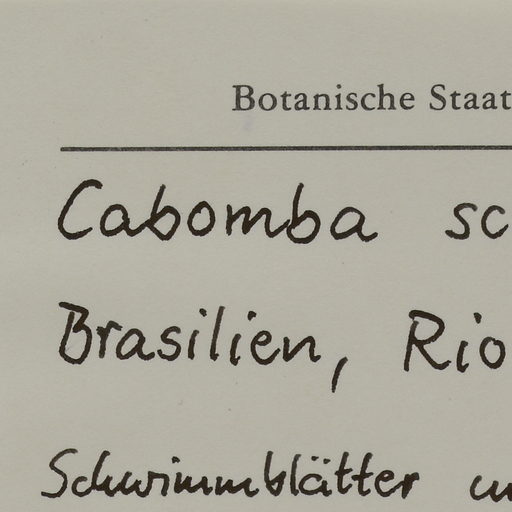 Botanische Staat
Cabomba sc
Brasilien, Rio
Schwimmblätter